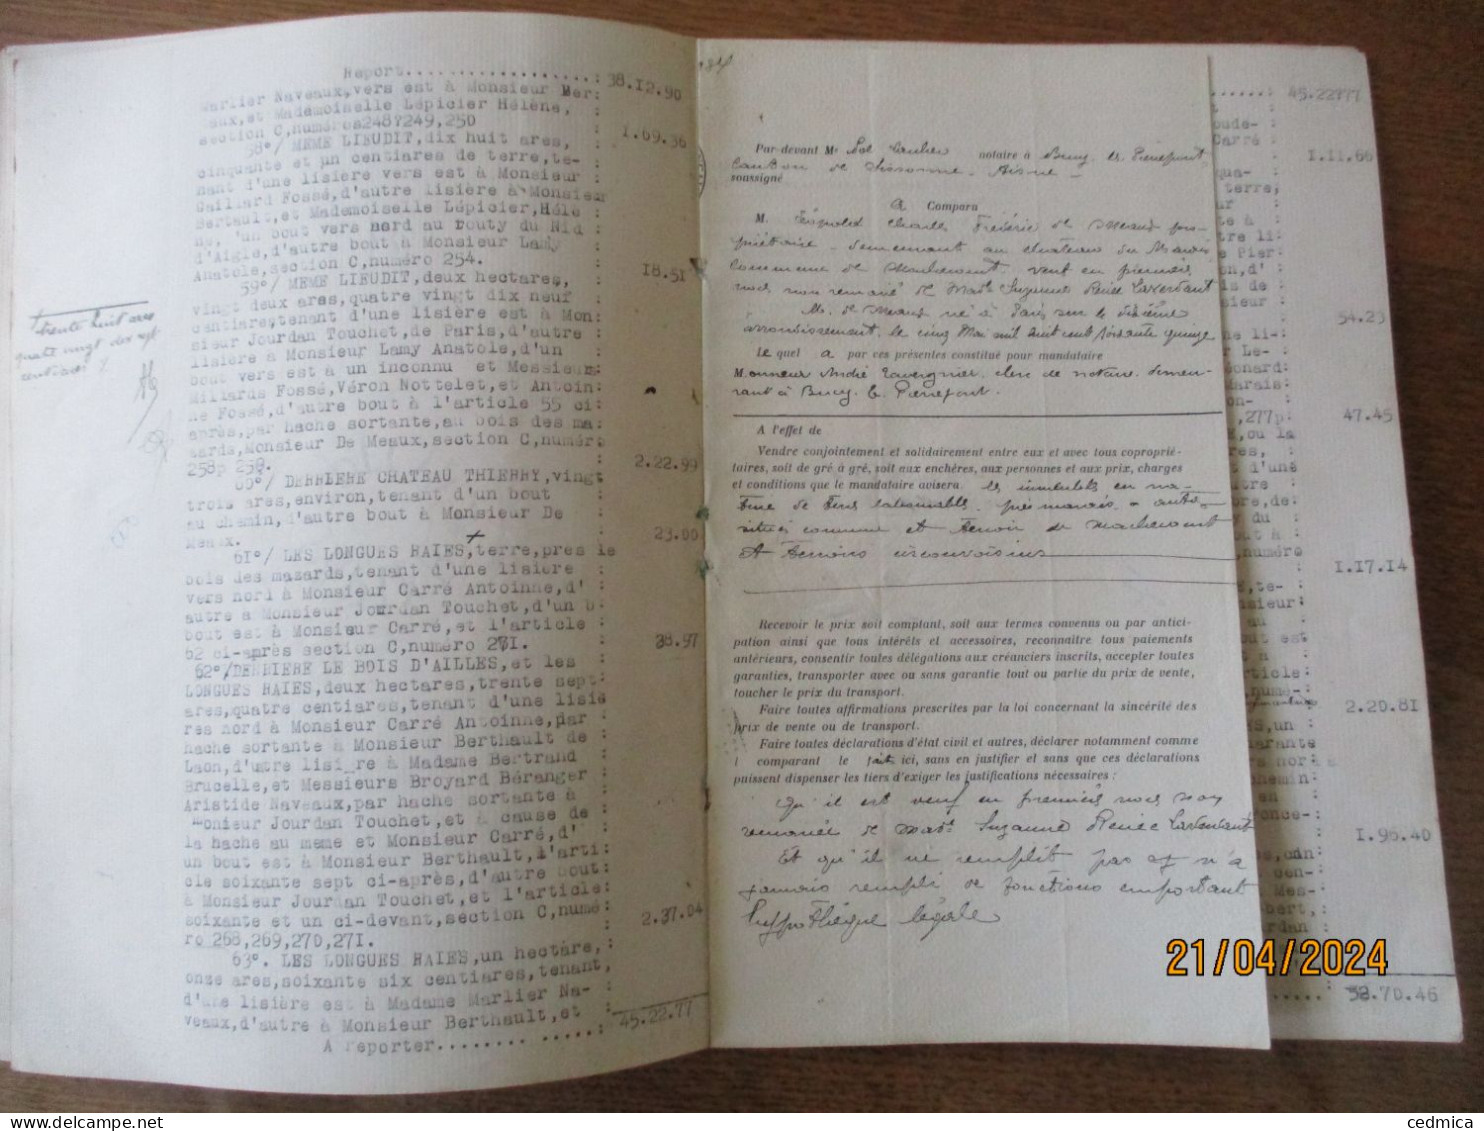 Report..................: 38.12.90
Marlier Naveaux,vers est à Monsieur Ber:
aux,et Mademoiselle Lépicier Hélène, :
section C,numéros248?249,250 : 1.69.36
58°/ MEME LIEUDIT,dix huit ares,
cinquante et un centiares de terre,te-
nant d'une lisière vers est à Monsieur :
Gaillard Fossé,d'autre lisière à Monsieur
Bertault,et Mademoiselle Lépicier,Hélè :
ne, 'un bout vers nord au routy du Nid :
d'Aigle,d'autre bout à Monsieur Lamy
Anatole,section C,numéro 254. : 18.51
59°/ MEME LIEUDIT,deux hectares, :
vingt deux ares,quatre vingt dix neuf :
centiares,tenant d'une lisière est à Mon:
sieur Jourdan Touchet,de Paris,d'autre :
lisière à Monsieur Lamy Anatole,d'un :
bout vers est à un inconnu et Messieurs:
Millards Fossé,Véron Nottelet,et Antoin:
ne Fossé,d'autre bout à l'article 55 ci:
après,par hache sortante,au bois des ma:
zards,Monsieur De Meaux,section C,numéro
258p 259. : 2.22.99
60°/ DERRIERE CHATEAU THIERRY,vingt
trois ares,environ,tenant d'un bout :
au chemin,d'autre bout à Monsieur De :
Meaux. : 23.00
61°/ LES LONGUES HAIES,terre,près le
bois des mazards,tenant d'une lisière :
vers nord à Monsieur Carré Antoinne,d' :
autre à Monsieur Jourdan Touchet,d'un b:
bout est à Monsieur Carré,et l'article :
62 ci-après section C,numéro 271. : 38.97
62°/DERRIERE LE BOIS D'AILLES,et les :
LONGUES HAIES,deux hectares,trente sept:
ares,quatre centiares,tenant d'une lisiè
res nord à Monsieur Carré Antoinne,par :
hache sortante à Monsieur Berthault de :
Laon,d'autre lisière à Madame Bertrand :
Brucelle,et Messieurs Broyard Béranger :
Aristide Naveaux,par hache sortante à :
Monieur Jourdan Touchet,et à cause de :
la hache au meme et Monsieur Carré,d' :
un bout est à Monsieur Berthault,l'arti:
cle soixante sept ci-après,d'autre bout:
à Monsieur Jourdan Touchet,et l'article:
soixante et un ci-devant,section C,numé:
ro 268,269,270,271. : 2.37.04
63°. LES LONGUES HAIES,un hectare, :
onze ares,soixante six centiares,tenant,
d'une lisière est à Madame Marlier Na- :
veaux,d'autre à Monsieur Berthault,et :
A reporter........ .....: 45.22.77
trente huit ares
quatre vingt dix sept
centiares
Par-devant Me Pol Caulier notaire à Bucy les Pierrepont
Canton de Sissonne, Aisne
soussigné
A Comparu
M. Léopold Charles Frédéric de Meaux pro-
priétaire demeurant au château du Marais
Commune de Machecourt, veuf en premières
noces non remarié de Made Suzanne Renée Laverdant
M. de Meaux né à Paris sur le dixième
arrondissement, le cinq Mai mil huit cent soixante quinze
Lequel a par ces présentes constitué pour mandataire
Monsieur André Lavergnier, clerc de notaire, demeu-
rant à Bucy les Pierrepont.
A l'effet de
Vendre conjointement et solidairement entre eux et avec tous coproprié-
taires, soit de gré à gré, soit aux enchères, aux personnes et aux prix, charges
et conditions que le mandataire avisera les immeubles en na-
ture de terres labourables, prés marais et autres
situés commune et terroir de Machecourt
et terroirs circonvoisins
Recevoir le prix soit comptant, soit aux termes convenus ou par antici-
pation ainsi que tous intérêts et accessoires, reconnaitre tous paiements
antérieurs, consentir toutes délégations aux créanciers inscrits, accepter toutes
garanties, transporter avec ou sans garantie tout ou partie du prix de vente,
toucher le prix du transport.
Faire toutes affirmations prescrites par la loi concernant la sincérité des
prix de vente ou de transport.
Faire toutes déclarations d'état civil et autres, déclarer notamment comme
l comparant le fait ici, sans en justifier et sans que ces déclarations
puissent dispenser les tiers d'exiger les justifications nécessaires :
Qu'il est veuf en premières noces non
remarié de Made Suzanne Renée Laverdant
Et qu'il ne remplit pas et n'a
jamais rempli de fonctions emportant
hypothèque légale
......: 45.2277
oude- :
Carré : 1.11.66
qua- :
terre,
ur :
te à :
tre li:
e Pier:
on,d' :
is de :
sieur : 54.23
ne li-:
r Le- :
onard:
Marais:
on- :
,277p: 47.45
E,ou la
res, :
t d'une
utre :
bre,de:
du :
out à :
numéro
1.17.14
E,te- :
sieur:
au :
ut est
à :
ticle:
numé-: 2.20.81
S,un-:
arante
s nord à
hemin:
en :
once-: 1.96.40
s,cin:
cen- :
Mes- :
bert,:
rdan :
.....: 52.70.46
21/04/2024
cedmica